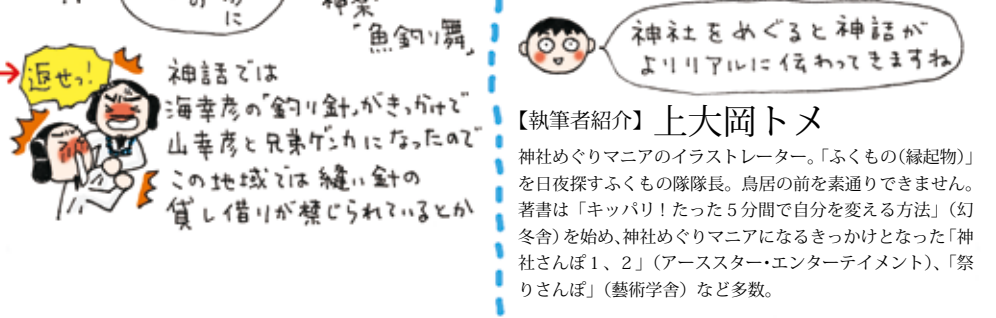 に
神楽
「魚釣り舞」
返せっ!
神話では
海幸彦の「釣り針」がきっかけで
山幸彦と兄弟ゲンカになったので
この地域では縫い針の
貸し借りが禁じられているとか
神社をめぐると神話が
よりリアルに伝わってきますね
【執筆者紹介】上大岡トメ
神社めぐりマニアのイラストレーター。「ふくもの(縁起物)」
を日夜探すふくもの隊隊長。鳥居の前を素通りできません。
著書は「キッパリ!たった5分間で自分を変える方法」(幻
冬舎)を始め、神社めぐりマニアになるきっかけとなった「神
社さんぽ1、2」(アーススター・エンターテイメント)、「祭
りさんぽ」(藝術学舎)など多数。